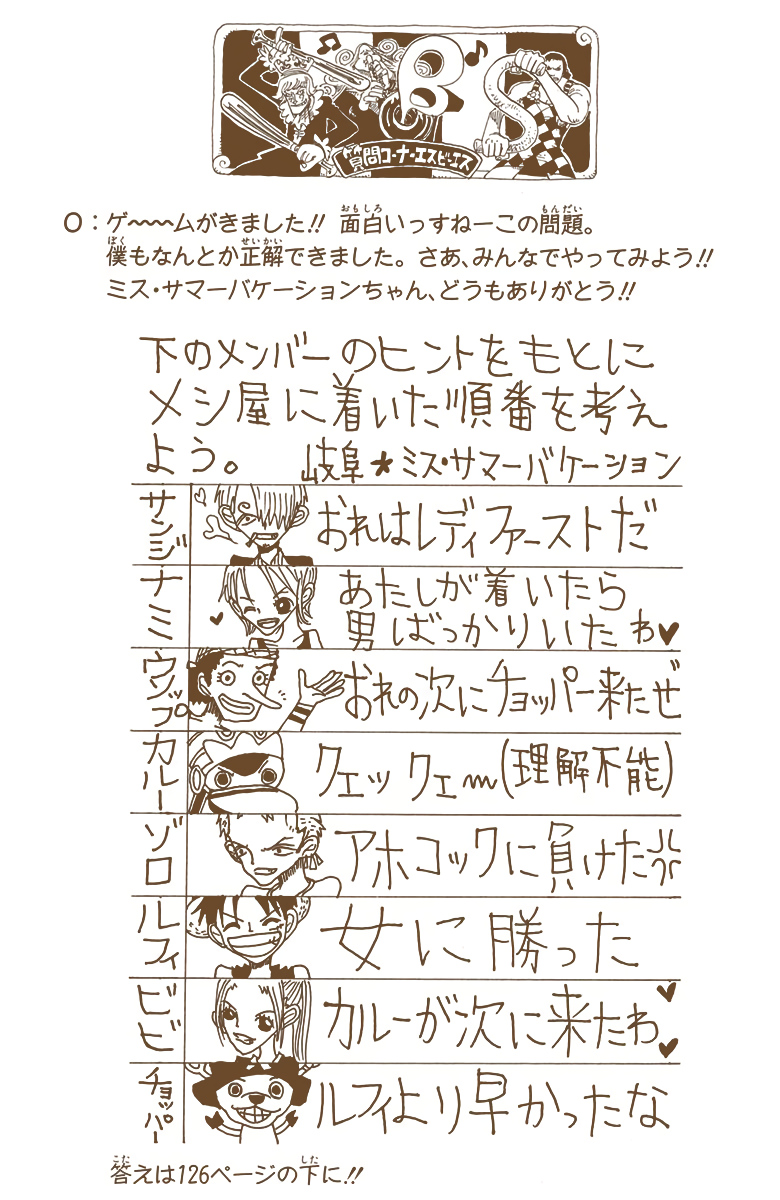 質問コーナーエスビーエス
O：ゲ〜〜ムがきました!! 面白いっすねーこの問題。
僕もなんとか正解できました。さあ、みんなでやってみよう!!
ミス・サマーバケーションちゃん、どうもありがとう!!
下のメンバーのヒントをもとに
メシ屋に着いた順番を考え
よう。 岐阜★ミス・サマーバケーション
サンジ おれはレディファーストだ
ナミ あたしが着いたら
男ばっかりいたわ♥
ウソップ おれの次にチョッパー来たぜ
カルー クエックエ〜(理解不能)
ゾロ アホコックに負けた
ルフィ 女に勝った
ビビ カルーが次に来たわ♥
チョッパー ルフィより早かったな
答えは126ページの下に!!